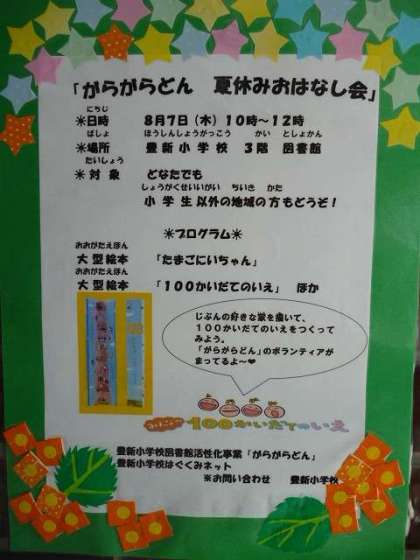 「がらがらどん　夏休みおはなし会」
にちじ
＊日時　8月7日（木）10時～12時
ばしょ　ほうしんしょうがっこう　かい　としょかん
＊場所　豊新小学校　3階　図書館
たいしょう
＊対象　どなたでも
しょうがくせいいがい　ちいき　かた
小学生以外の地域の方もどうぞ！
＊プログラム＊
おおがたえほん
大型絵本　「たまごにいちゃん」
おおがたえほん
大型絵本　「100かいだてのいえ」　ほか
じぶんの好きな家を描いて、
100かいだてのいえをつくって
みよう。
「がらがらどん」のボランティアが
まってるよ～❤
100かいだてのいえ
豊新小学校図書館活性化事業「がらがらどん」
豊新小学校はぐくみネット
※お問い合わせ　豊新小学校